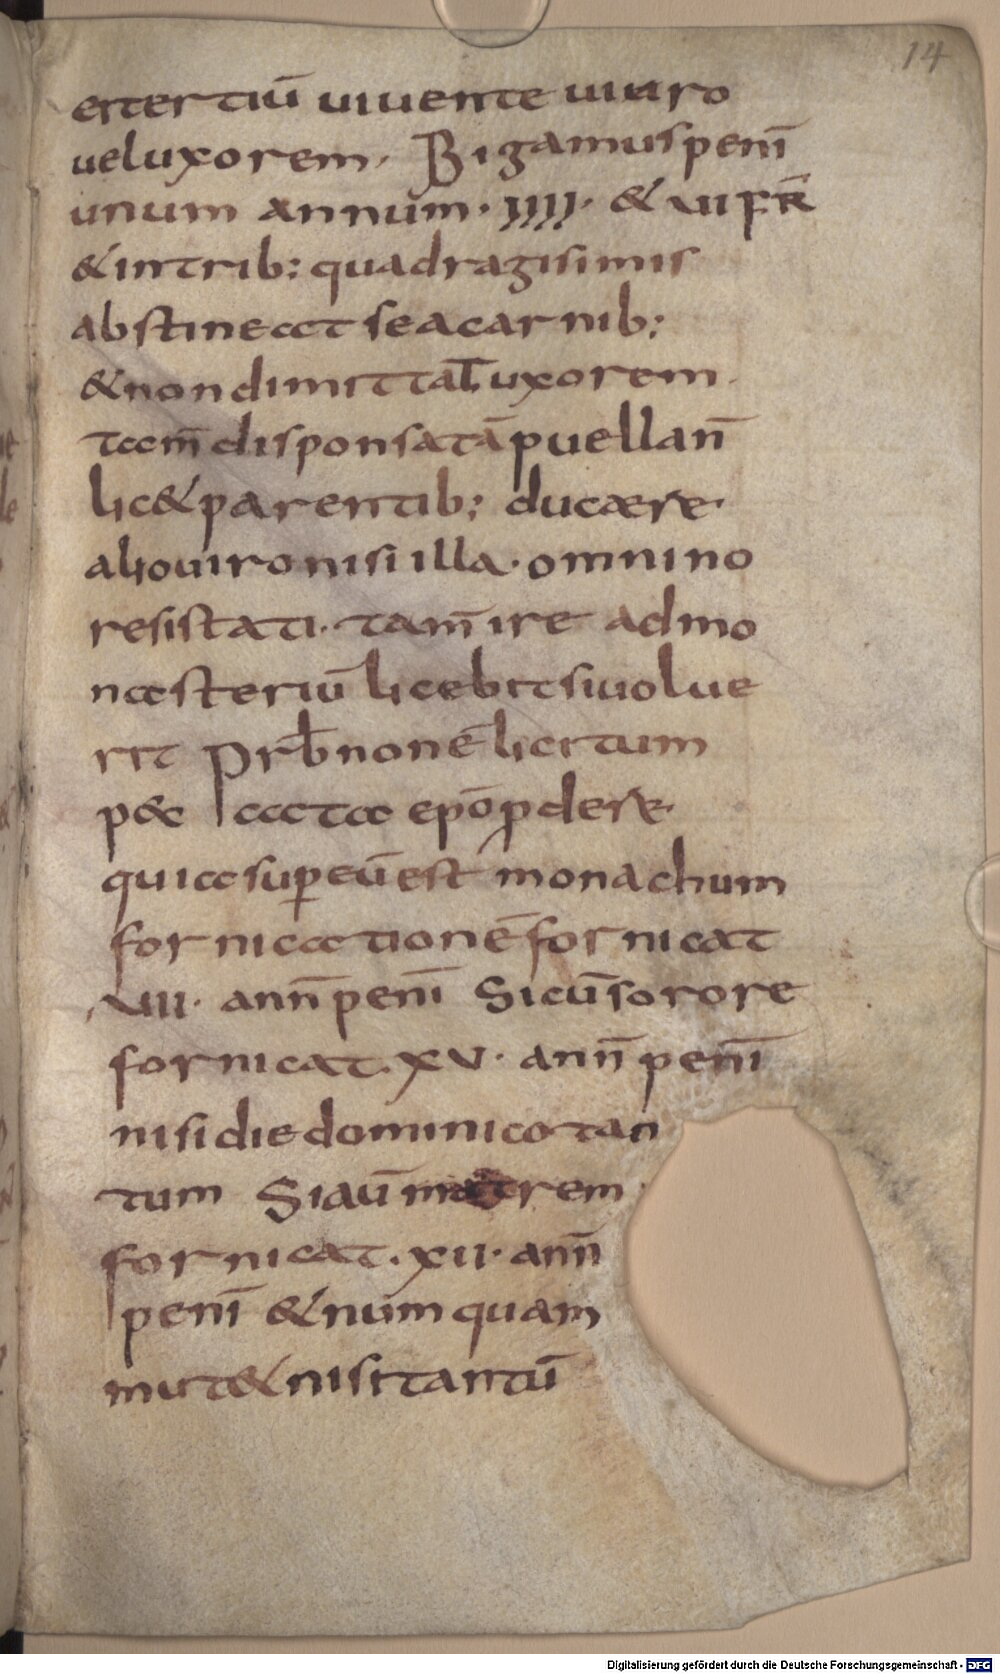 14
ert ertiū uiuente uiuro
uel uxorem. Bigamus penī
unum annum. IIII. & VII FR̄
& in trib; quadragisimis
abstineat se a carnib;
& non dimittat̄ uxorem.
tam̄ disponsatā puellan̄
lic& parentib; ducære
alio uiro nisi illa. omnino
resistati. tam̄ ire ad mo
nasteriū licebit si uolue
rit Prb̄ non ē licitum
p&c cata epō pdere.
quia sup eū est monachum
fornicationē fornicat
VIII. ann̄ penī Si cū sorore
fornicat. XV. ann̄ penī
nisi die dominico tan
tum Si aū matrem
fornicat. XII. ann̄
penī & numquam
mut& nisi tantū
Digitalisierung gefördert durch die Deutsche Forschungsgemeinschaft - DFG